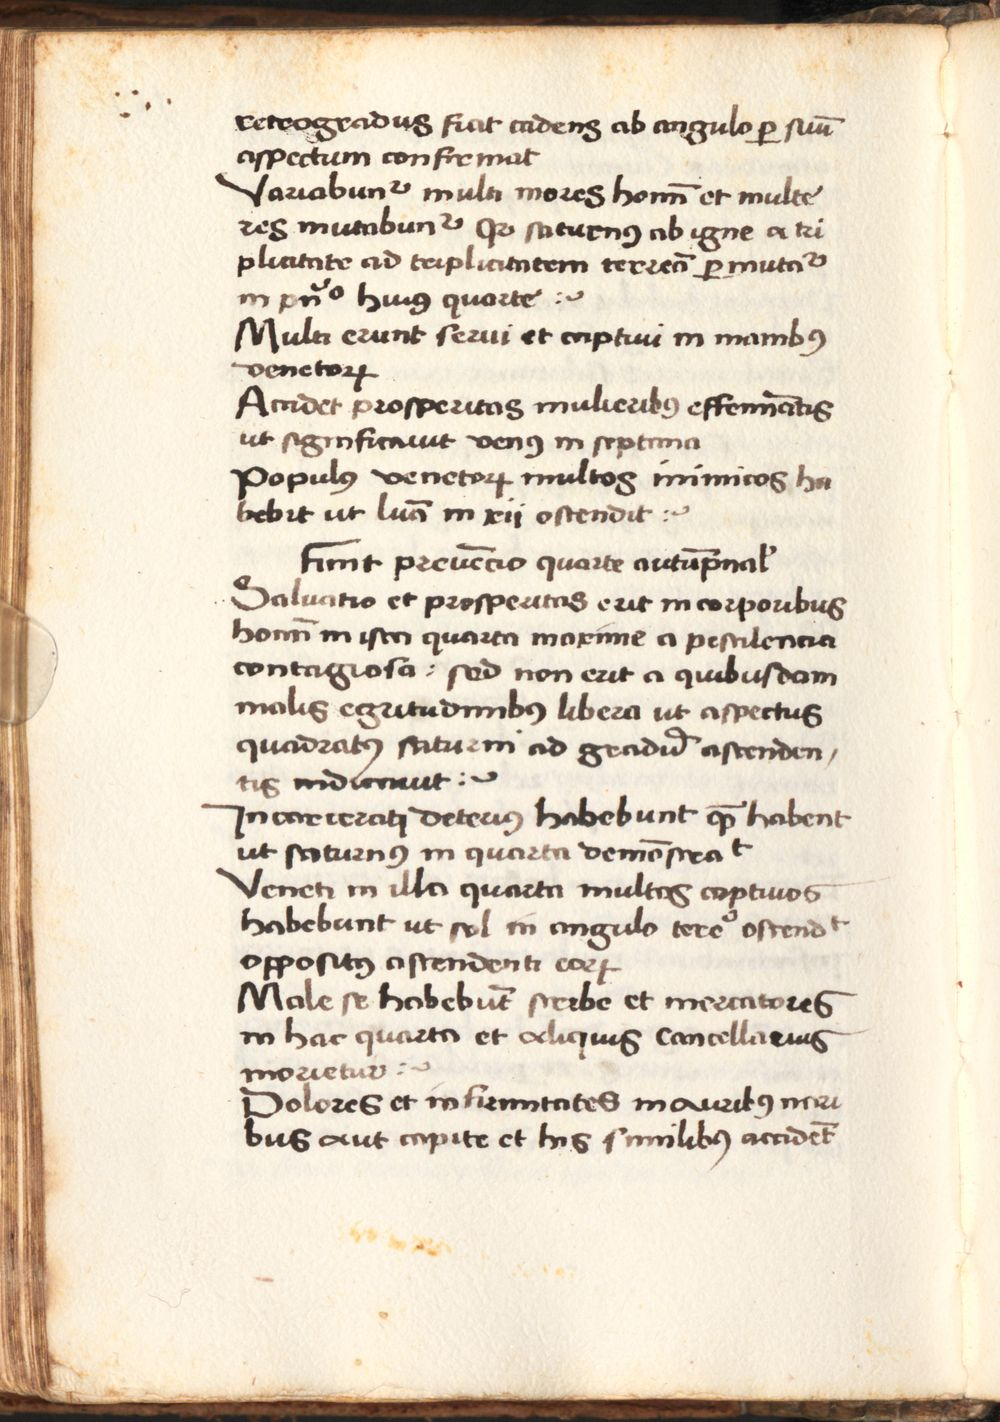 retrogradus fiat cadens ab angulo ꝑ suū
aspectum confirmat
Variabunᷣ multi mores homī et multe
res mutabunᷣ Qꝛ saturnꝯ ab igne a tri
plicitate ad triplicitatem terreā ꝑmutaᷣ
in pn̄ᵒ huiꝯ quarte :~
Multi erunt servi et captivi in manibꝯ
venetoꝝ
Accidet prosperitas mulieribꝯ effemīatis
ut significavit venꝯ in septima
Populꝯ venetoꝝ multos inimicos ha
bebit ut lūa in xii ostendit :~
quarte autūpnal̓
Salvatio et prosperitas erit in corporibus
homī in ista quarta maxime a pestilencia
contagiosa : sed non erit a quibusdam
malis egritudinibꝯ libera ut aspectus
quadratꝯ saturni ad gradū ascenden/
tis indicavit :~
Incarcerati deteriꝯ habebunt qꝫ habent
ut saturnꝯ in quarta demōstraᵗ
Veneti in illa quarta multos captivos
habebunt ut sol in angulo ostendᵗ
oppositꝯ ascendenti eoꝝ
Male se habebūt scribe et mercatores
in hac quarta et aliquis Cancellarius
morietur :~
Dolores et infirmitates in auribꝯ nari
bus aut capite et his similibꝯ accidēt